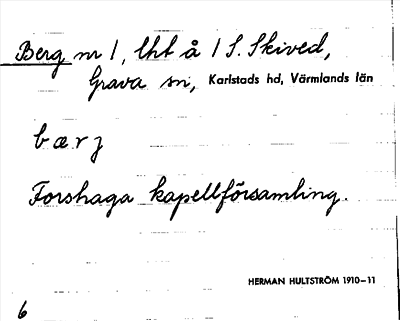 Berg nr 1, lht å 1 S. Skived,
Grava sn, Karlstads hd, Värmlands län
bærj
Forshaga kapellförsamling.
HERMAN HULTSTRÖM 1910–11
6